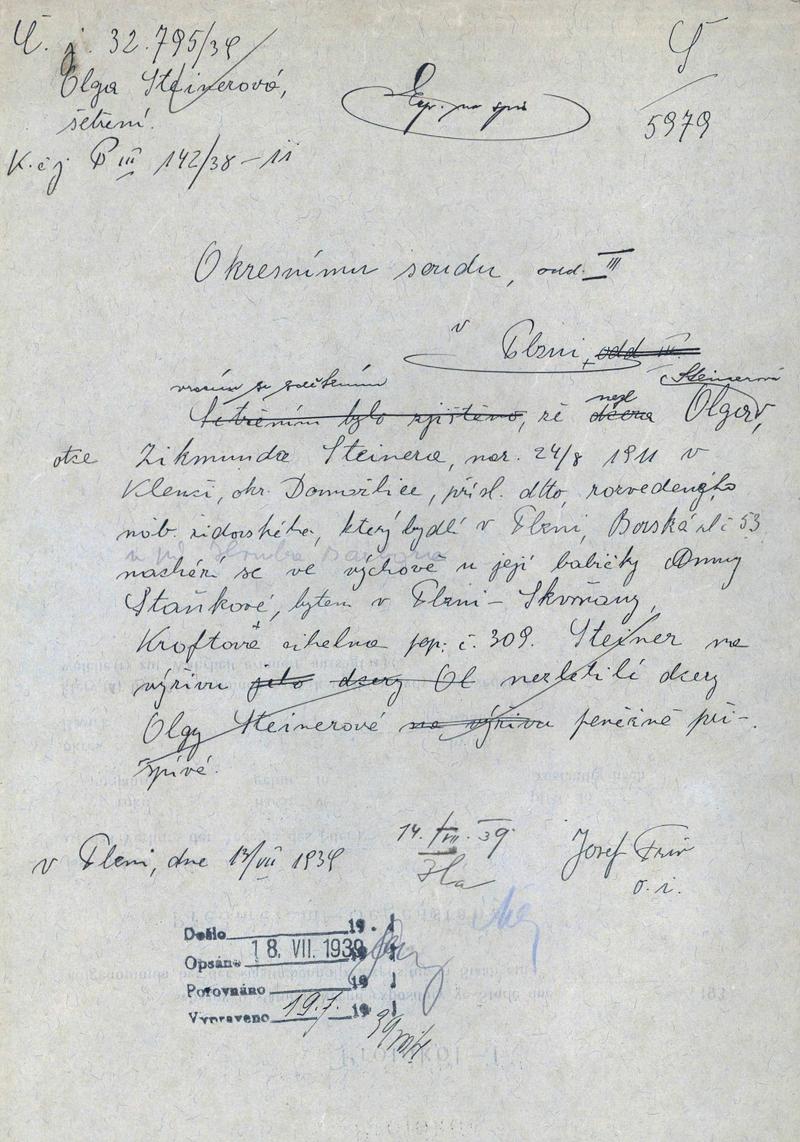 Č. j. 32.795/39
Olga Steinerová,
šetření.
K. č j. P III 142/38 – 11
5979
Okresnímu soudu, odd. III
v Plzni, odd III.
vracím se sdělením
Šetřením bylo zjištěno, že dcera nezl Olga, Steinerová
otce Zikmunda Steinera, nar. 24/8 1911 v
Klenčí, okr. Domažlice, přísl. dtto, rozvedeného
náb. židovského, který bydlí v Plzni, Borská ul č 53
nachází se ve výchově u její babičky Anny
Staňkové, bytem v Plzni – Skvrňany,
Kroftova cihelna pop. č. 309. Steiner na
výživu jeho dcery Ol nezletilé dcery
Olgy Steinerové na výživu peněžně při-
spívá.
v Plzni, dne 13/VII 1939
14. VII. 39
Josef
o. i.
Došlo 19
Opsáno 18. VII. 1939
Porovnáno 19
Vypraveno 19.7. 19
Protokol